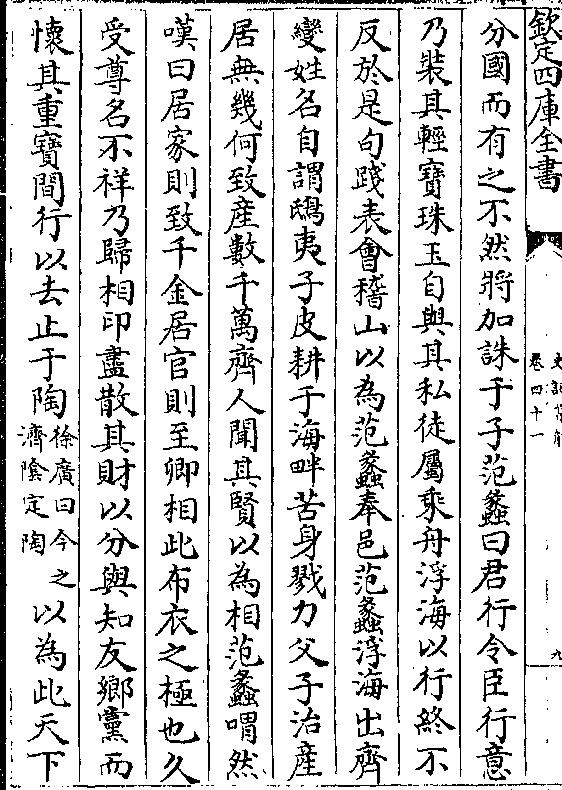 欽定四庫全書
卷四十一
九
分國而有之不然將加誅于子范蠡曰君行令臣行意
乃裝其輕寶珠玉自與其私徒屬乘舟浮海以行終不
反於是句踐表會稽山以為范蠡奉邑范蠡浮海出齊
變姓名自謂鴟夷子皮耕于海畔苦身戮力父子治產
居無幾何致產數千萬齊人聞其賢以為相范蠡喟然
嘆曰居家則致千金居官則至卿相此布衣之極也久
受尊名不祥乃歸相印盡散其財以分與知友鄉黨而
懷其重寶間行以去止于陶徐廣曰今之濟陰定陶以為此天下